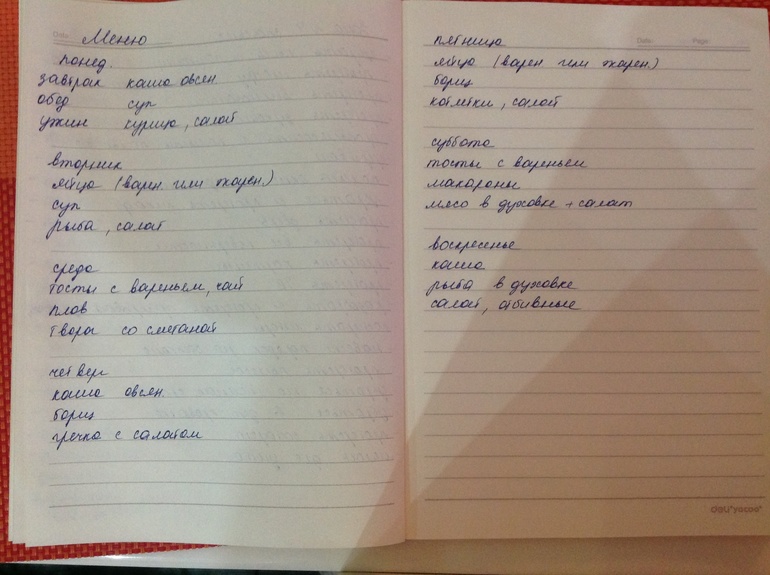 Date.
Меню
понед.
завтрак каша овсен
обед суп
ужин курица, салат
вторник
яйца (варен или жарен.)
суп
рыба, салат
среда
тосты с вареньем, чай
плов
творог со сметаной
четверг
каша овсян.
борщ
гречка с салатом
Date. Page.
пятница
яйца (варен или жарен.)
борщ
котлетки, салат
суббота
тосты с вареньем
макароны
мясо в духовке + салат
воскресенье
каша
рыба в духовке
салат, отбивные